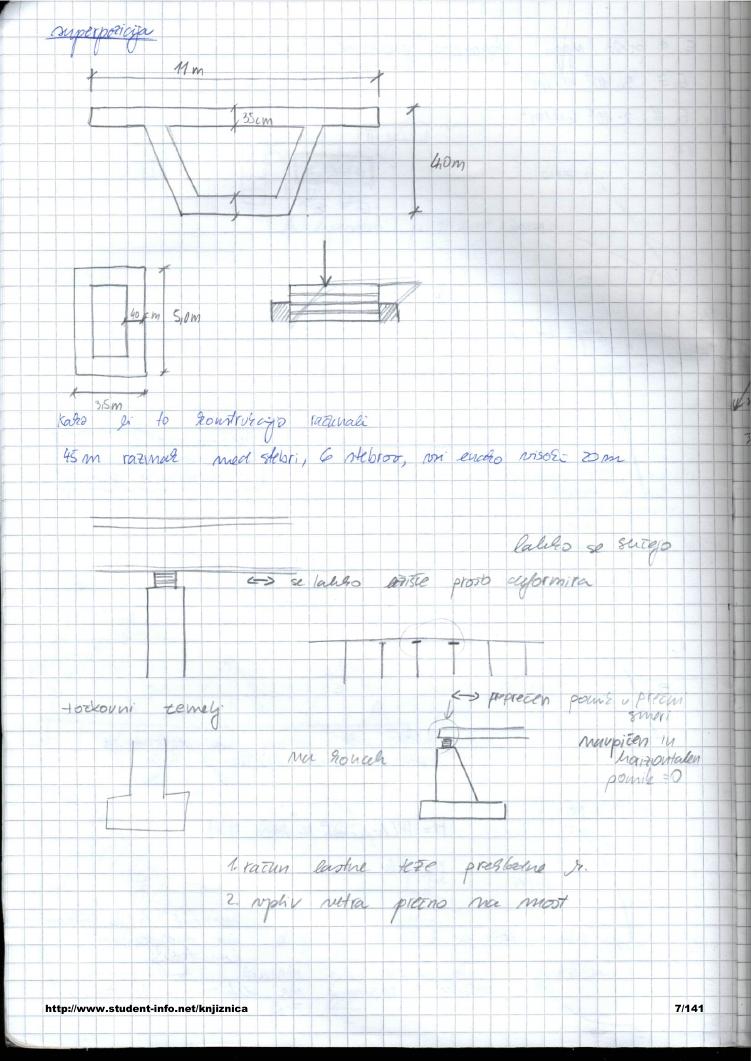 superpozicija
11m
35cm
4,0m
40 cm
5,0m
3,5m
kako bi to konstrukcijo računali
45m razmak med stebri, 6 stebrov, vsi enako visoki 20m
lahko se sučejo
↔ se lahko ležišče prosto deformira
točkovni temelj
↔ preprečen pomik v prečni
smeri
na konceh
navpičen in
horizontalen
pomik =0
1. račun lastne teže prekladne k.
2. vpliv vetra prečno na most
http://www.student-info.net/knjiznica
7/141